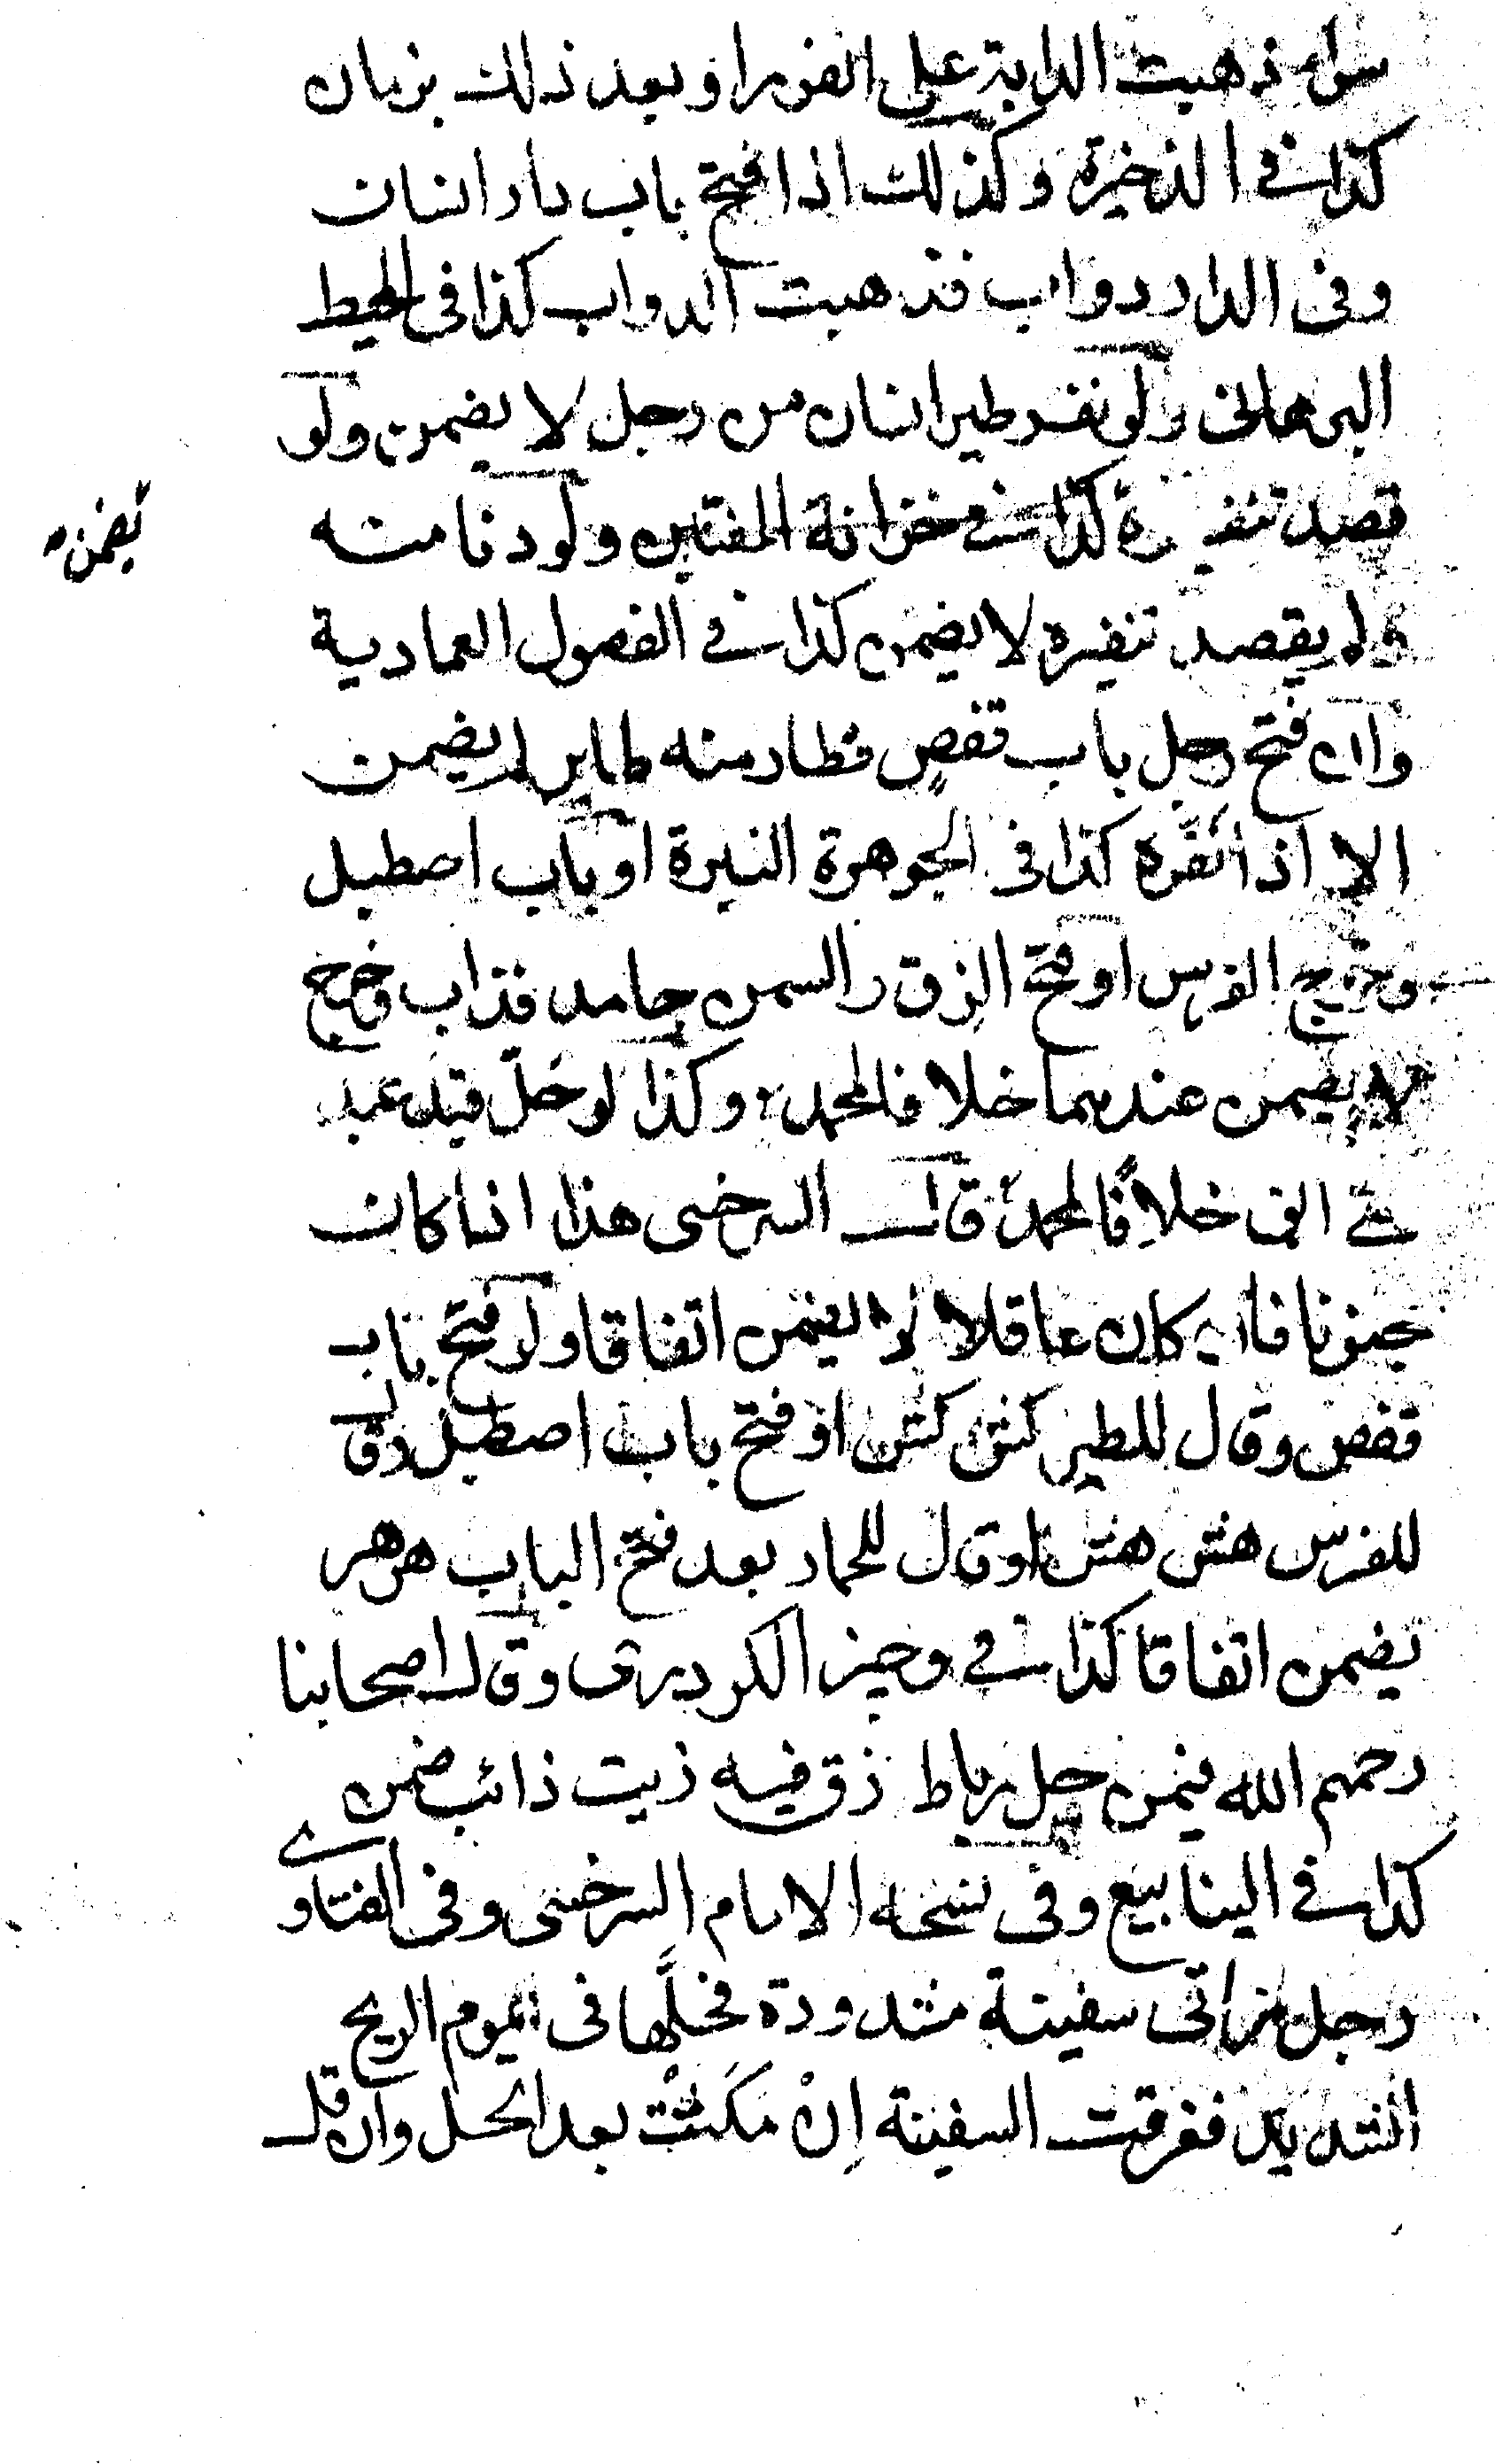 سواء ذهبت الدابة على الفور او بعد ذلك بزمان
كذا في الذخيرة وكذلك اذا فتح باب دار انسان
وفى الدار دواب فذهبت الدواب كذا فى المحيط
البرهانى ولو نفر طير انسان من رجل لا يضمن ولو
قصد تنفيره كذا في خزانة المفتين ولو دنا منه
يضمن
ولم يقصد تنفيره لا يضمن كذا في الفصول العمادية
وان فتح رجل باب قفصٍ فطار منه طاير لم يضمن
الا اذا نَفَّره كذا فى الجوهرة النيرة او باب اصطبل
وخرج الفرس او فتح الزق والسمن جامد فذاب وخرج
لا يضمن عندهما خلافا لمحمد وكذا لو حَلّ قيد عبد
خلافًا لمحمد قال السرخسى هذا اذا كان
مجنونا فان كان عاقلا لا يضمن اتفاقا ولو فتح باب
قفص وقال للطير كش كش او فتح باب اصطبل وقال
للفرس هش هش او قال للحمار بعد فتح الباب هر هر
يضمن اتفاقا كذا في وجيز الكردرى وقال اصحابنا
رحمهم الله فيمن حل رباط زق فيه زيت ذائب ضمن
كذا في الينابيع وفى نسخه الامام السرخسى وفى الفتاوى
رجل اتى سفينة مشدودة فحلَّها فى يوم الريح
الشديد فغرقت السفينة اِنْ مَكَثَتْ بعد الحل وان قل